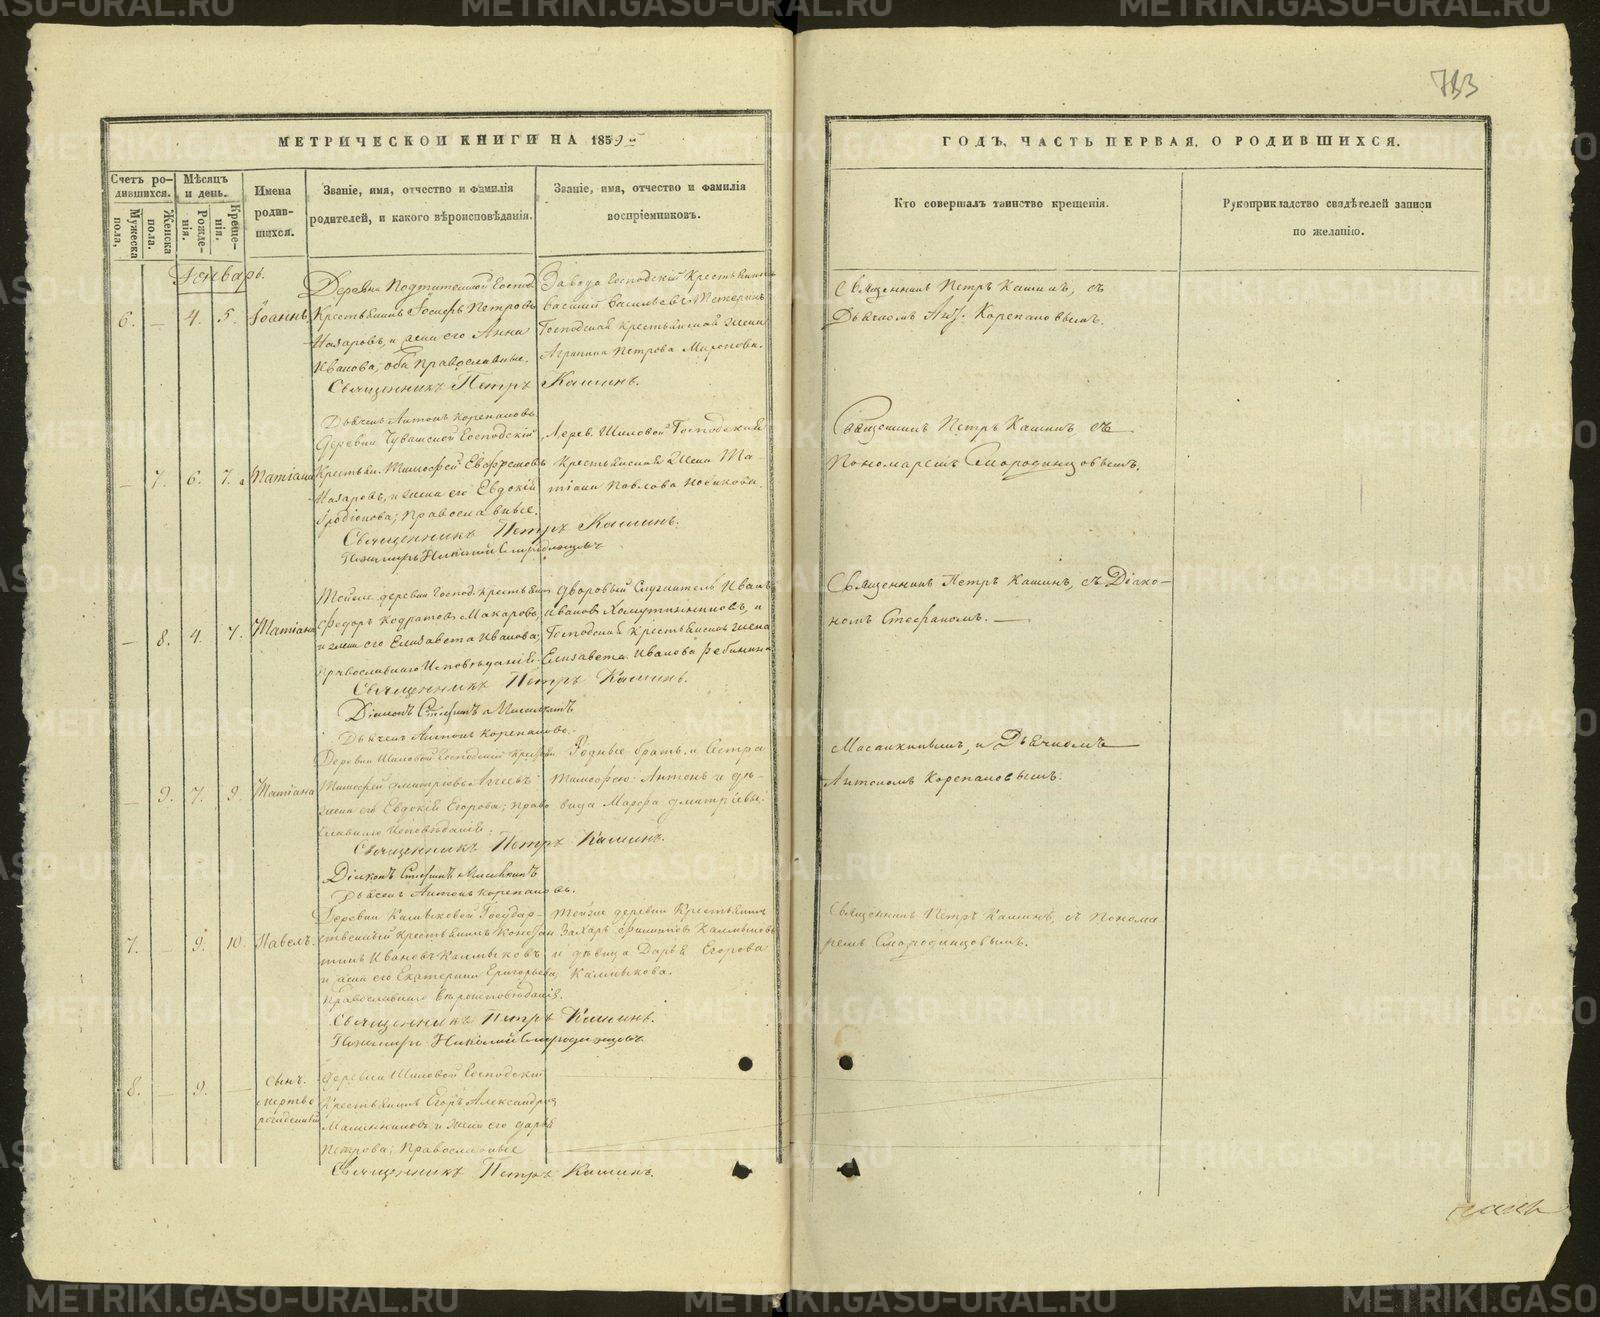 783
МЕТРИЧЕСКОЙ КНИГИ НА 1859 й
ГОДЪ, ЧАСТЬ ПЕРВАЯ, О РОДИВШИХСЯ.
Счетъ ро-
дившихся.
Мужеска
пола.
Женска
пола.
Мѣсяцъ
и день.
Рожде-
нія.
Креще-
нія.
Имена
родив-
шихся.
Званіе, имя, отчество и фамилія
родителей, и какого вѣроисповѣданія.
Званіе, имя, отчество и фамилія
воспріемниковъ.
Кто совершалъ таинство крещенія.
Рукоприкладство свидѣтелей записи
по желанію.
Генварь.
6. — 4. 5. Іоаннъ
Деревни Господ.
Крестьянинъ Іосифъ Петровъ
Назаровъ, и жена его Анна
Иванова, оба Православные.
Завода Господскій Крестьянинъ
Василій Васильевъ
Господская крестьянская жена
Агрипина Петрова Миронова.
Священникъ Петръ Кашинъ, съ
Дьячкомъ Ант. Корепановымъ.
Священникъ Петръ Кашинъ.
Дьячекъ Антонъ Корепановъ.
— 7. 6. 7. Татіана
Деревни Чувашской Господскій
Крестьян. Тимофей Евфремовъ
Назаровъ, и жена его Евдокія
Родіонова; Православные.
Дерев. Шиловой Господская
Крестьянская Жена Та-
тіана Павлова Новикова.
Священникъ Петръ Кашинъ, съ
Пономаремъ Смородинцовымъ.
Священникъ Петръ Кашинъ.
Пономарь Николай Смородинцовъ
— 8. 4. 7. Татіана
Тойже деревни Господ. Крестьянин
Федоръ Кодратовъ Макаровъ,
и жена его Елизавета Иванова;
Православнаго Исповѣданія.
Дворовый Служитель Иванъ
Ивановъ и
Господская Крестьянская жена
Елизавета Иванова
Священникъ Петръ Кашинъ, съ Діако-
номъ Стефаномъ. —
Священникъ Петръ Кашинъ.
Діаконъ Стефанъ
Дьячекъ Антонъ Корепановъ.
— 9. 7. 9. Татіана
Деревни Шиловой Господскій Крестьян.
Тимофей Дмитріевъ Агеевъ
жена его Евдокія Егорова; Право
славнаго Исповѣданія.
Родные братъ и Сестра
Тимофею: Антонъ и дѣ-
вица Марфа Дмитріевы.
и Дьячкомъ
Антономъ Корепановымъ.
Священникъ Петръ Кашинъ.
Діаконъ Стефанъ
Дьячекъ Антонъ Корепановъ.
7. — 9. 10. Павелъ
Деревни Калмыковой Государ-
ственный крестьянинъ Констан
тинъ Ивановъ Калмыковъ
и жена его Екатерина Григорьева
Православнаго вѣроисповѣданія.
Тойже деревни Крестьянинъ
Захаръ Филиповъ Калмыковъ
и дѣвица Дарья Егорова
Калмыкова.
Священникъ Петръ Кашинъ, съ Понома
ремъ Смородинцовымъ.
Священникъ Петръ Кашинъ.
Пономарь Николай Смородинцовъ
8. — 9. —
сынъ
мертво
рожденный
Деревни Шиловой Господскій
Крестьянинъ Егоръ Александровъ
и жена его Дарья
Петрова; Православные
Священникъ Петръ Кашинъ.
METRIKI.GASO-URAL.RU